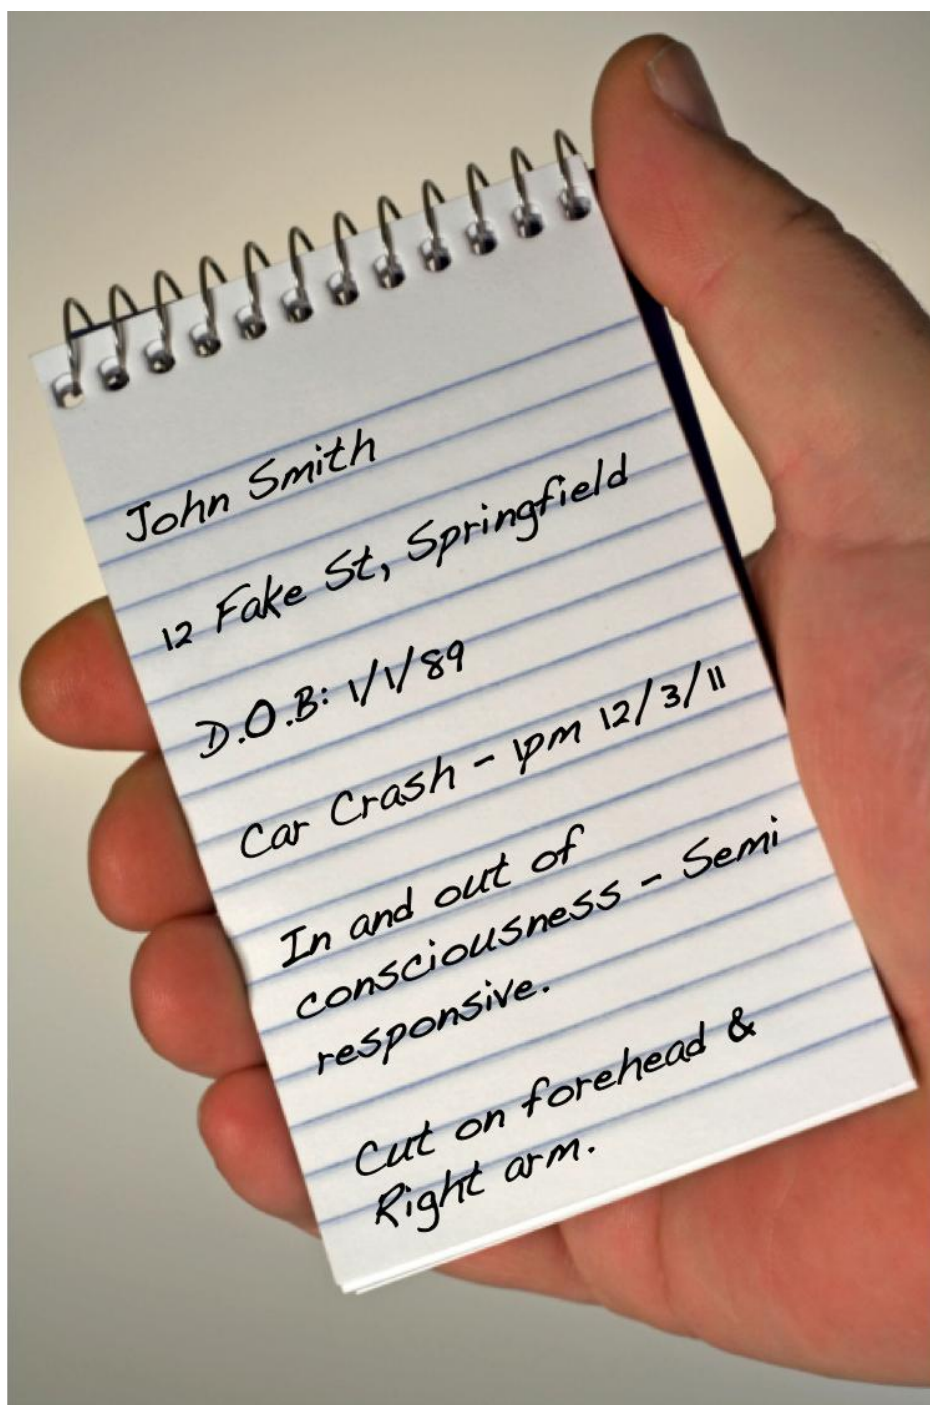 John Smith
12 Fake St, Springfield
D.O.B: 1/1/89
Car Crash - 1pm 12/3/11
In and out of
consciousness - Semi
responsive.
Cut on forehead &
Right arm.